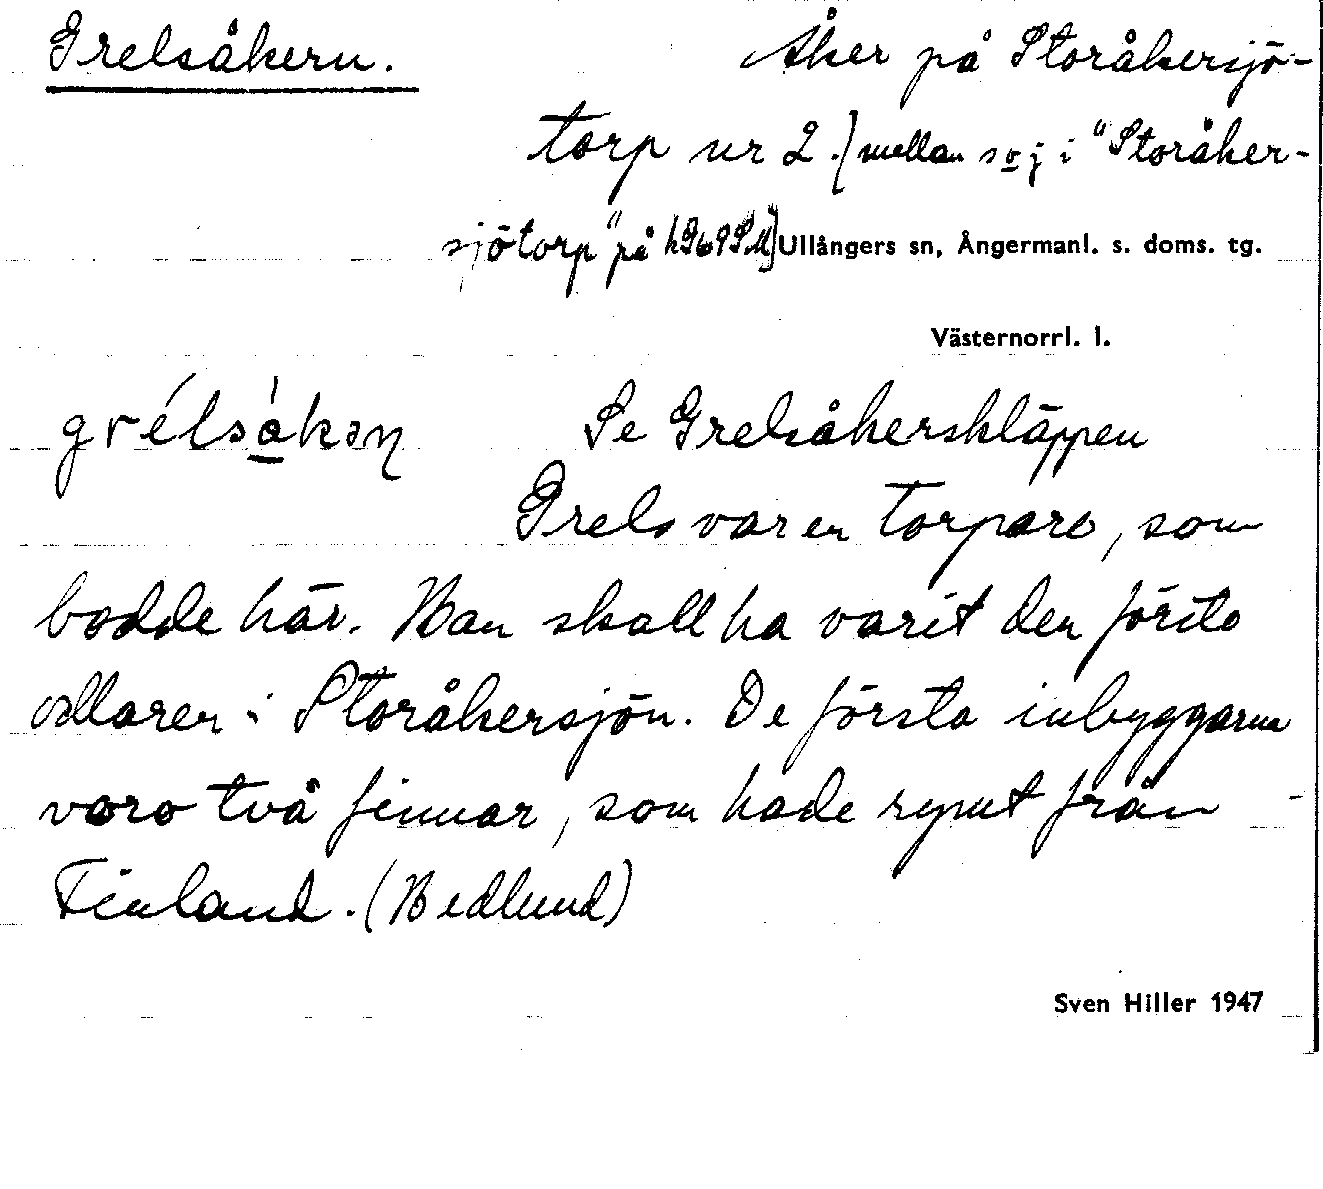 Grelsåkern. Åker på Storåkersjö-
torp nr 2. [mellan s o j i "Storåker-
sjötorp" på Ullångers sn, Ångermanl. s. doms. tg.
Västernorrl. l.
grélså̀kəɳ Se Grelsåkerskläppen
Grels var en torpare, som
bodde här. Han skall ha varit den första
odlaren i Storåkersjön. De första inbyggarna
voro två finnar, som hade rymt från
Finland. (Hedlund)
Sven Hiller 1947